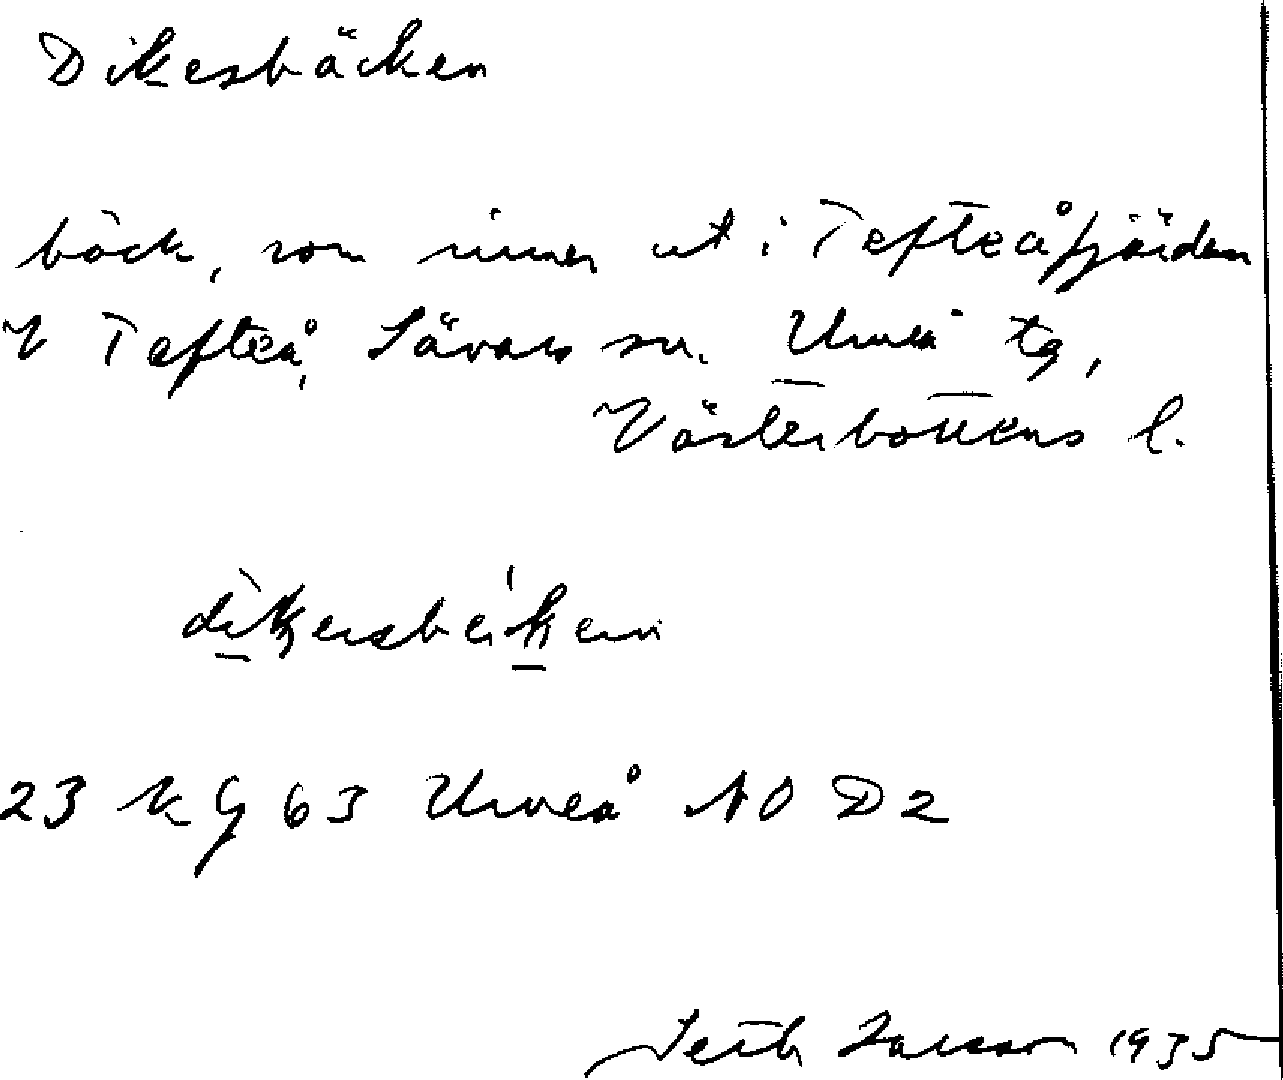 Dikesbäcken
bäck, som rinner ut i Tefteåfjärden
V Tefteå, Sävars sn. Umeå tg,
Västerbottens l.
23 K G 63 Umeå NO D2
Seth Larsson 1935